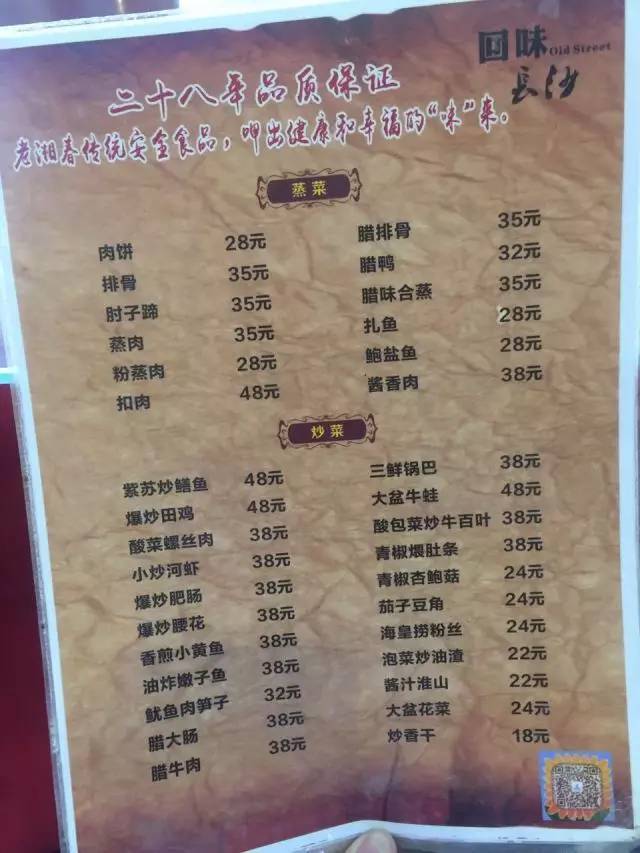 回味 Old Street
长沙
二十八年品质保证
老湘春传统安全食品，呷出健康和幸福的“味”来。
蒸菜
肉饼 28元
排骨 35元
肘子蹄 35元
蒸肉 35元
粉蒸肉 28元
扣肉 48元
腊排骨 35元
腊鸭 32元
腊味合蒸 35元
扎鱼 28元
鲍盐鱼 28元
酱香肉 38元
炒菜
紫苏炒鳝鱼 48元
爆炒田鸡 48元
酸菜螺丝肉 38元
小炒河虾 38元
爆炒肥肠 38元
爆炒腰花 38元
香煎小黄鱼 38元
油炸嫩子鱼 38元
鱿鱼肉笋子 32元
腊大肠 38元
腊牛肉 38元
三鲜锅巴 38元
大盆牛蛙 48元
酸包菜炒牛百叶 38元
青椒煨肚条 38元
青椒杏鲍菇 24元
茄子豆角 24元
海皇捞粉丝 24元
泡菜炒油渣 22元
酱汁淮山 22元
大盆花菜 24元
炒香干 18元